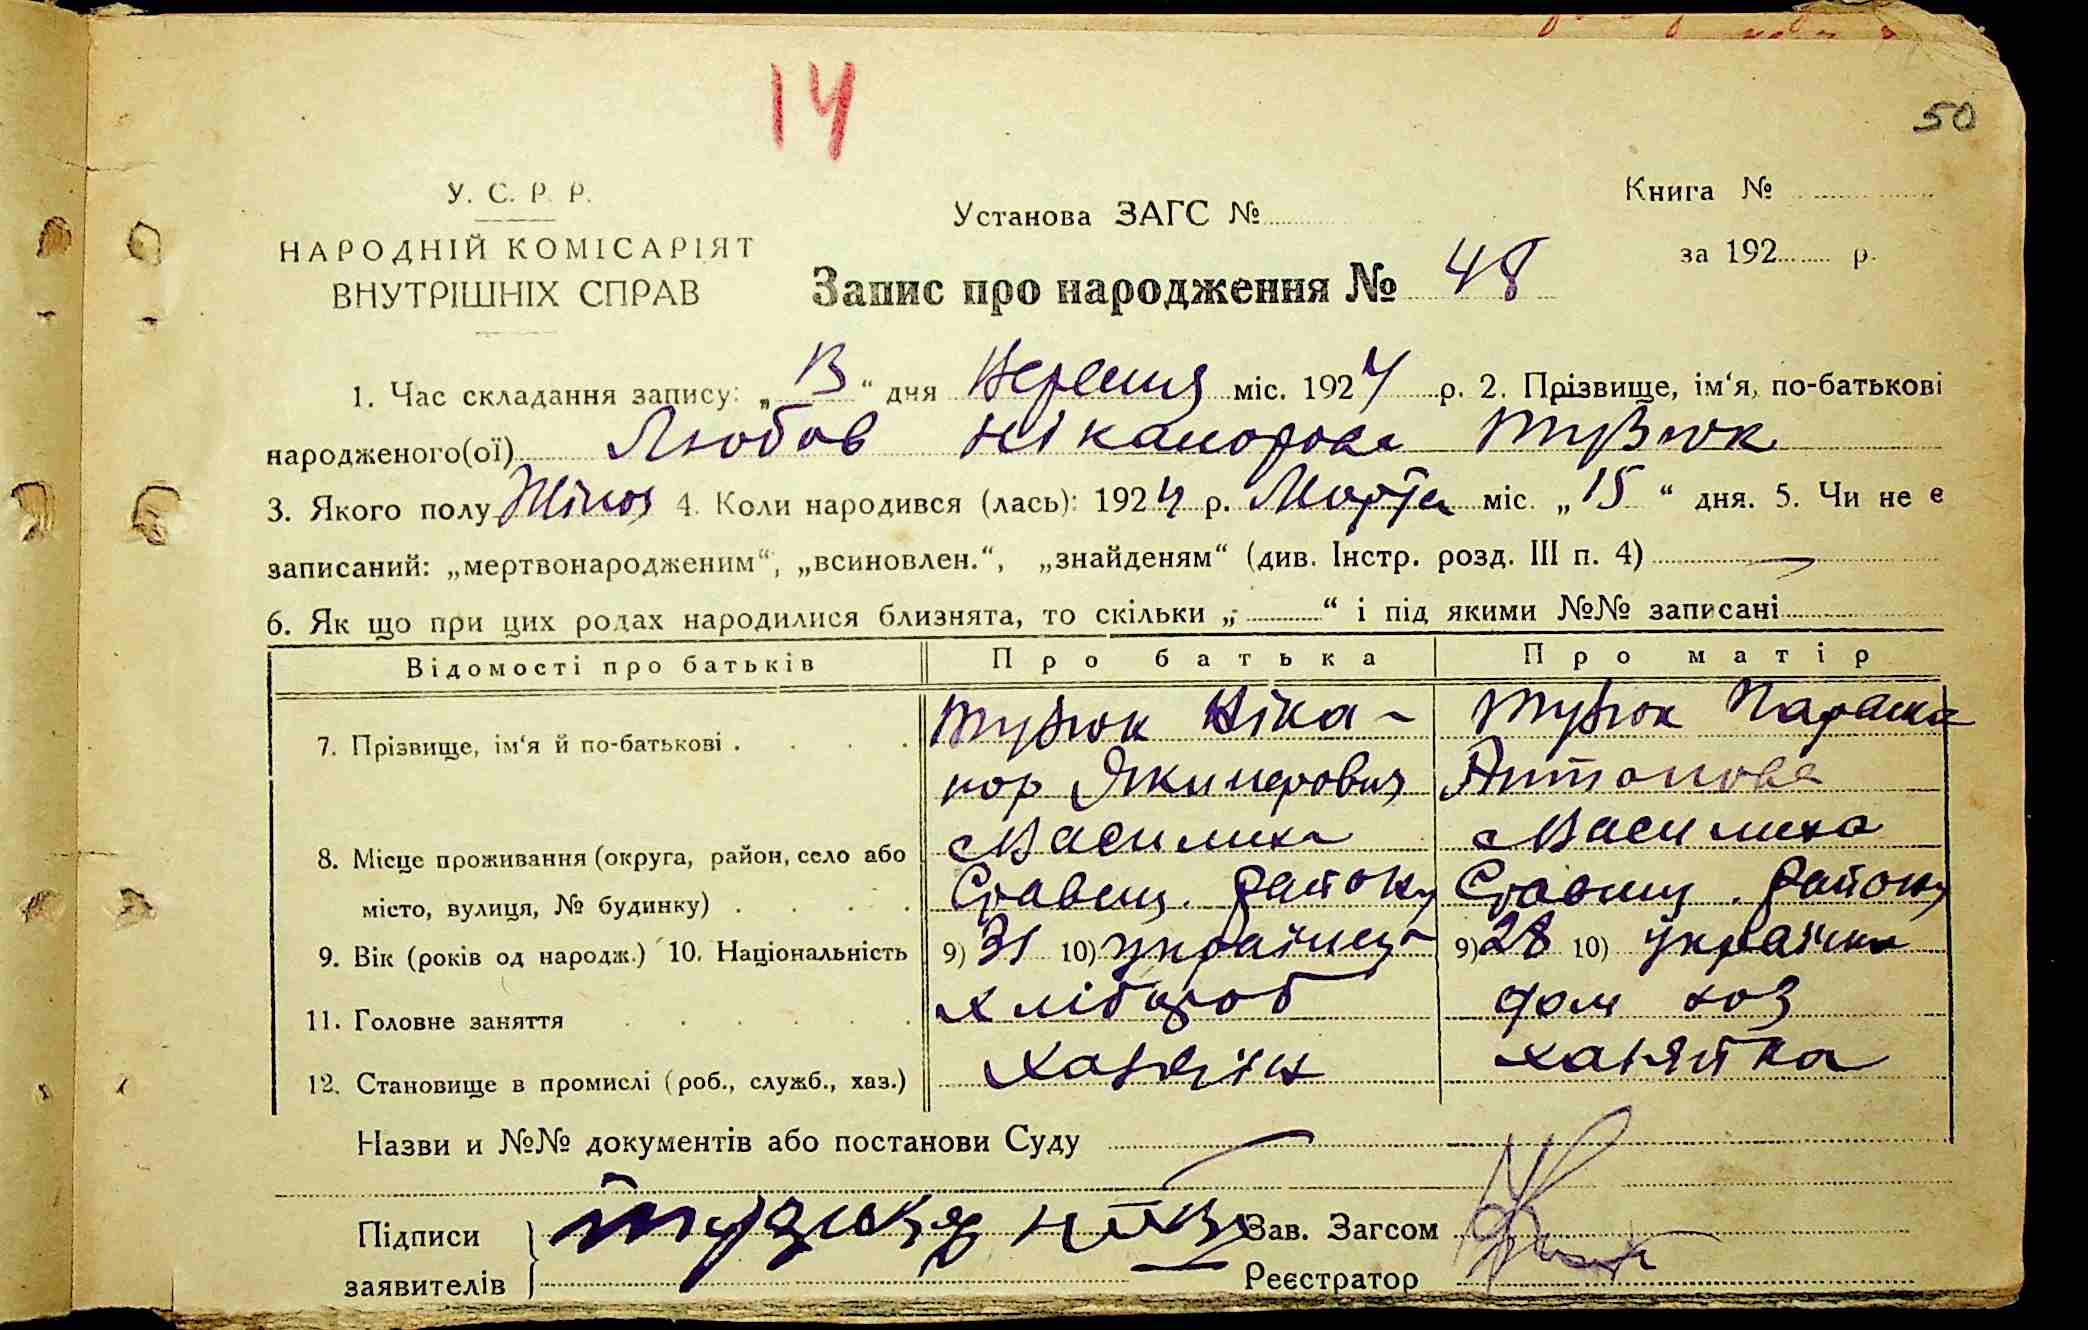 14
50
У. С. Р. Р.
НАРОДНІЙ КОМІСАРІЯТ
ВНУТРІШНІХ СПРАВ
Установа ЗАГС №
Книга №
за 192 р.
Запис про народження № 48
1. Час складання запису: „13“ дня Вересня міс. 1924 р. 2. Прізвище, ім‘я, по-батькові
народженого(ої) Любов Ніканорова Тузюк
3. Якого полу Жіноч 4. Коли народився (лась): 1924 р. Марта міс. „15“ дня. 5. Чи не є
записаний: „мертвонародженим“, „всиновлен.“, „знайденям“ (див. Інстр. розд. III п. 4) —
6. Як що при цих родах народилися близнята, то скільки „ “ і під якими №№ записані
Відомості про батьків Про батька Про матір
7. Прізвище, ім‘я й по-батькові . . . . Тузюк Ніка- Тузюк Параска
нор Антонова
8. Місце проживання (округа, район, село або Василиха Василиха
місто, вулиця, № будинку) . . . . Ставищ. району Ставищ. району
9. Вік (років од народж.) 10. Національність 9) 31 10) українець 9) 28 10) українка
11. Головне заняття . . . . . хлібороб дом хоз
12. Становище в промислі (роб., служб., хаз.) хазяїн хазяйка
Назви и №№ документів або постанови Суду
Підписи
заявителів
Зав. Загсом
Реєстратор